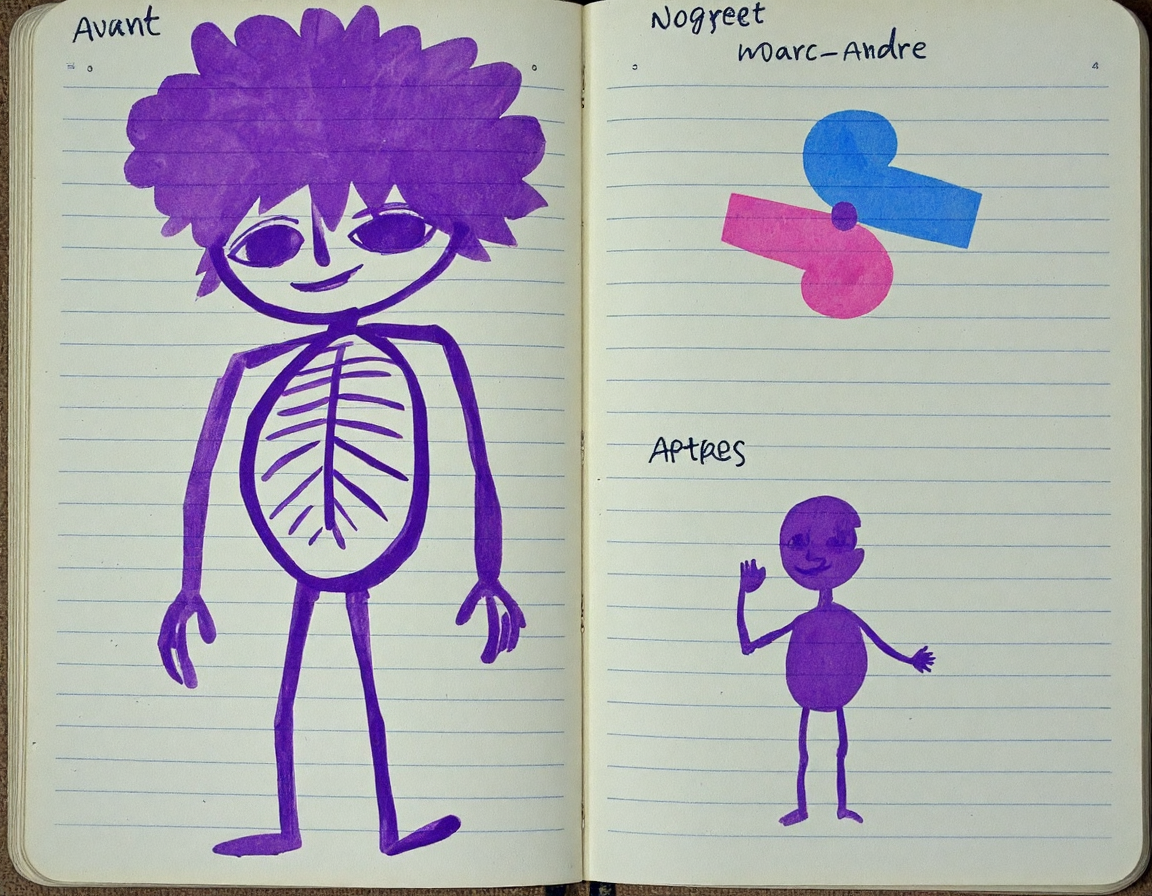 Avant
Nogreet
Marc-Andre
Aptres
4